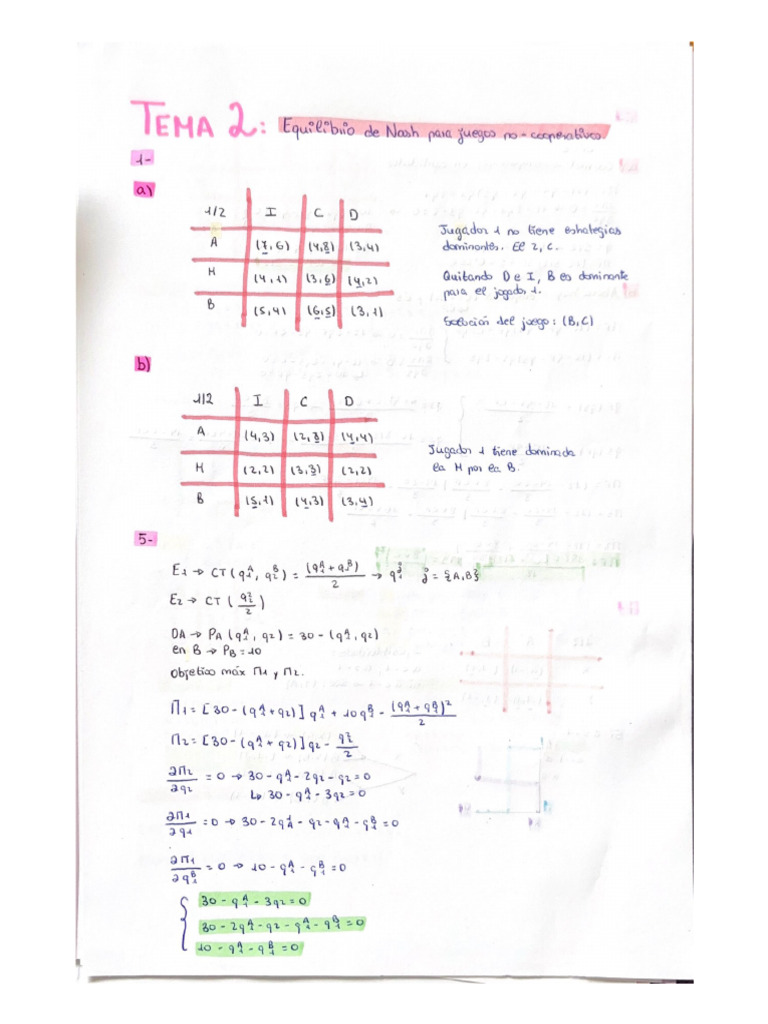 TEMA 2: Equilibrio de Nash para juegos no-cooperativos.
1-
a)
1/2 I C D
A (7,6) (4,8) (3,4)
M (4,1) (3,6) (4,2)
B (5,4) (6,5) (3,1)
Jugador 1 no tiene estrategias
dominantes. El 2, C.
Quitando D e I, B es dominante
para el jugador 1.
Solución del juego: (B,C)
b)
1/2 I C D
A (4,3) (2,3) (4,4)
M (2,2) (3,3) (2,2)
B (5,1) (4,3) (3,4)
Jugador 1 tiene dominada
la M por la B.
5-
E1 → CT(q₁ᴬ, q₂ᴮ) = (q₁ᴬ + q₁ᴮ)/2 → q₁ʲ j = {A,B}
E2 → CT(q₂²/2)
DA → PA(q₁ᴬ, q2) = 30 - (q₁ᴬ, q2)
en B → PB = 10
Objetivo máx Π1 y Π2.
Π1 = [30 - (q₁ᴬ + q2)] q₁ᴬ + 10q₁ᴮ - (q₁ᴬ + q₁ᴮ)²/2
Π2 = [30 - (q₁ᴬ + q2)] q2 - q₂²/2
∂Π2/∂q2 = 0 → 30 - q₁ᴬ - 2q2 - q2 = 0
↳ 30 - q₁ᴬ - 3q2 = 0
∂Π1/∂q1 = 0 → 30 - 2q₁ᴬ - q2 - q₁ᴬ - q₁ᴮ = 0
∂Π1/∂q₁ᴮ = 0 → 10 - q₁ᴬ - q₁ᴮ = 0
{ 30 - q₁ᴬ - 3q2 = 0
30 - 2q₁ᴬ - q2 - q₁ᴬ - q₁ᴮ = 0
10 - q₁ᴬ - q₁ᴮ = 0